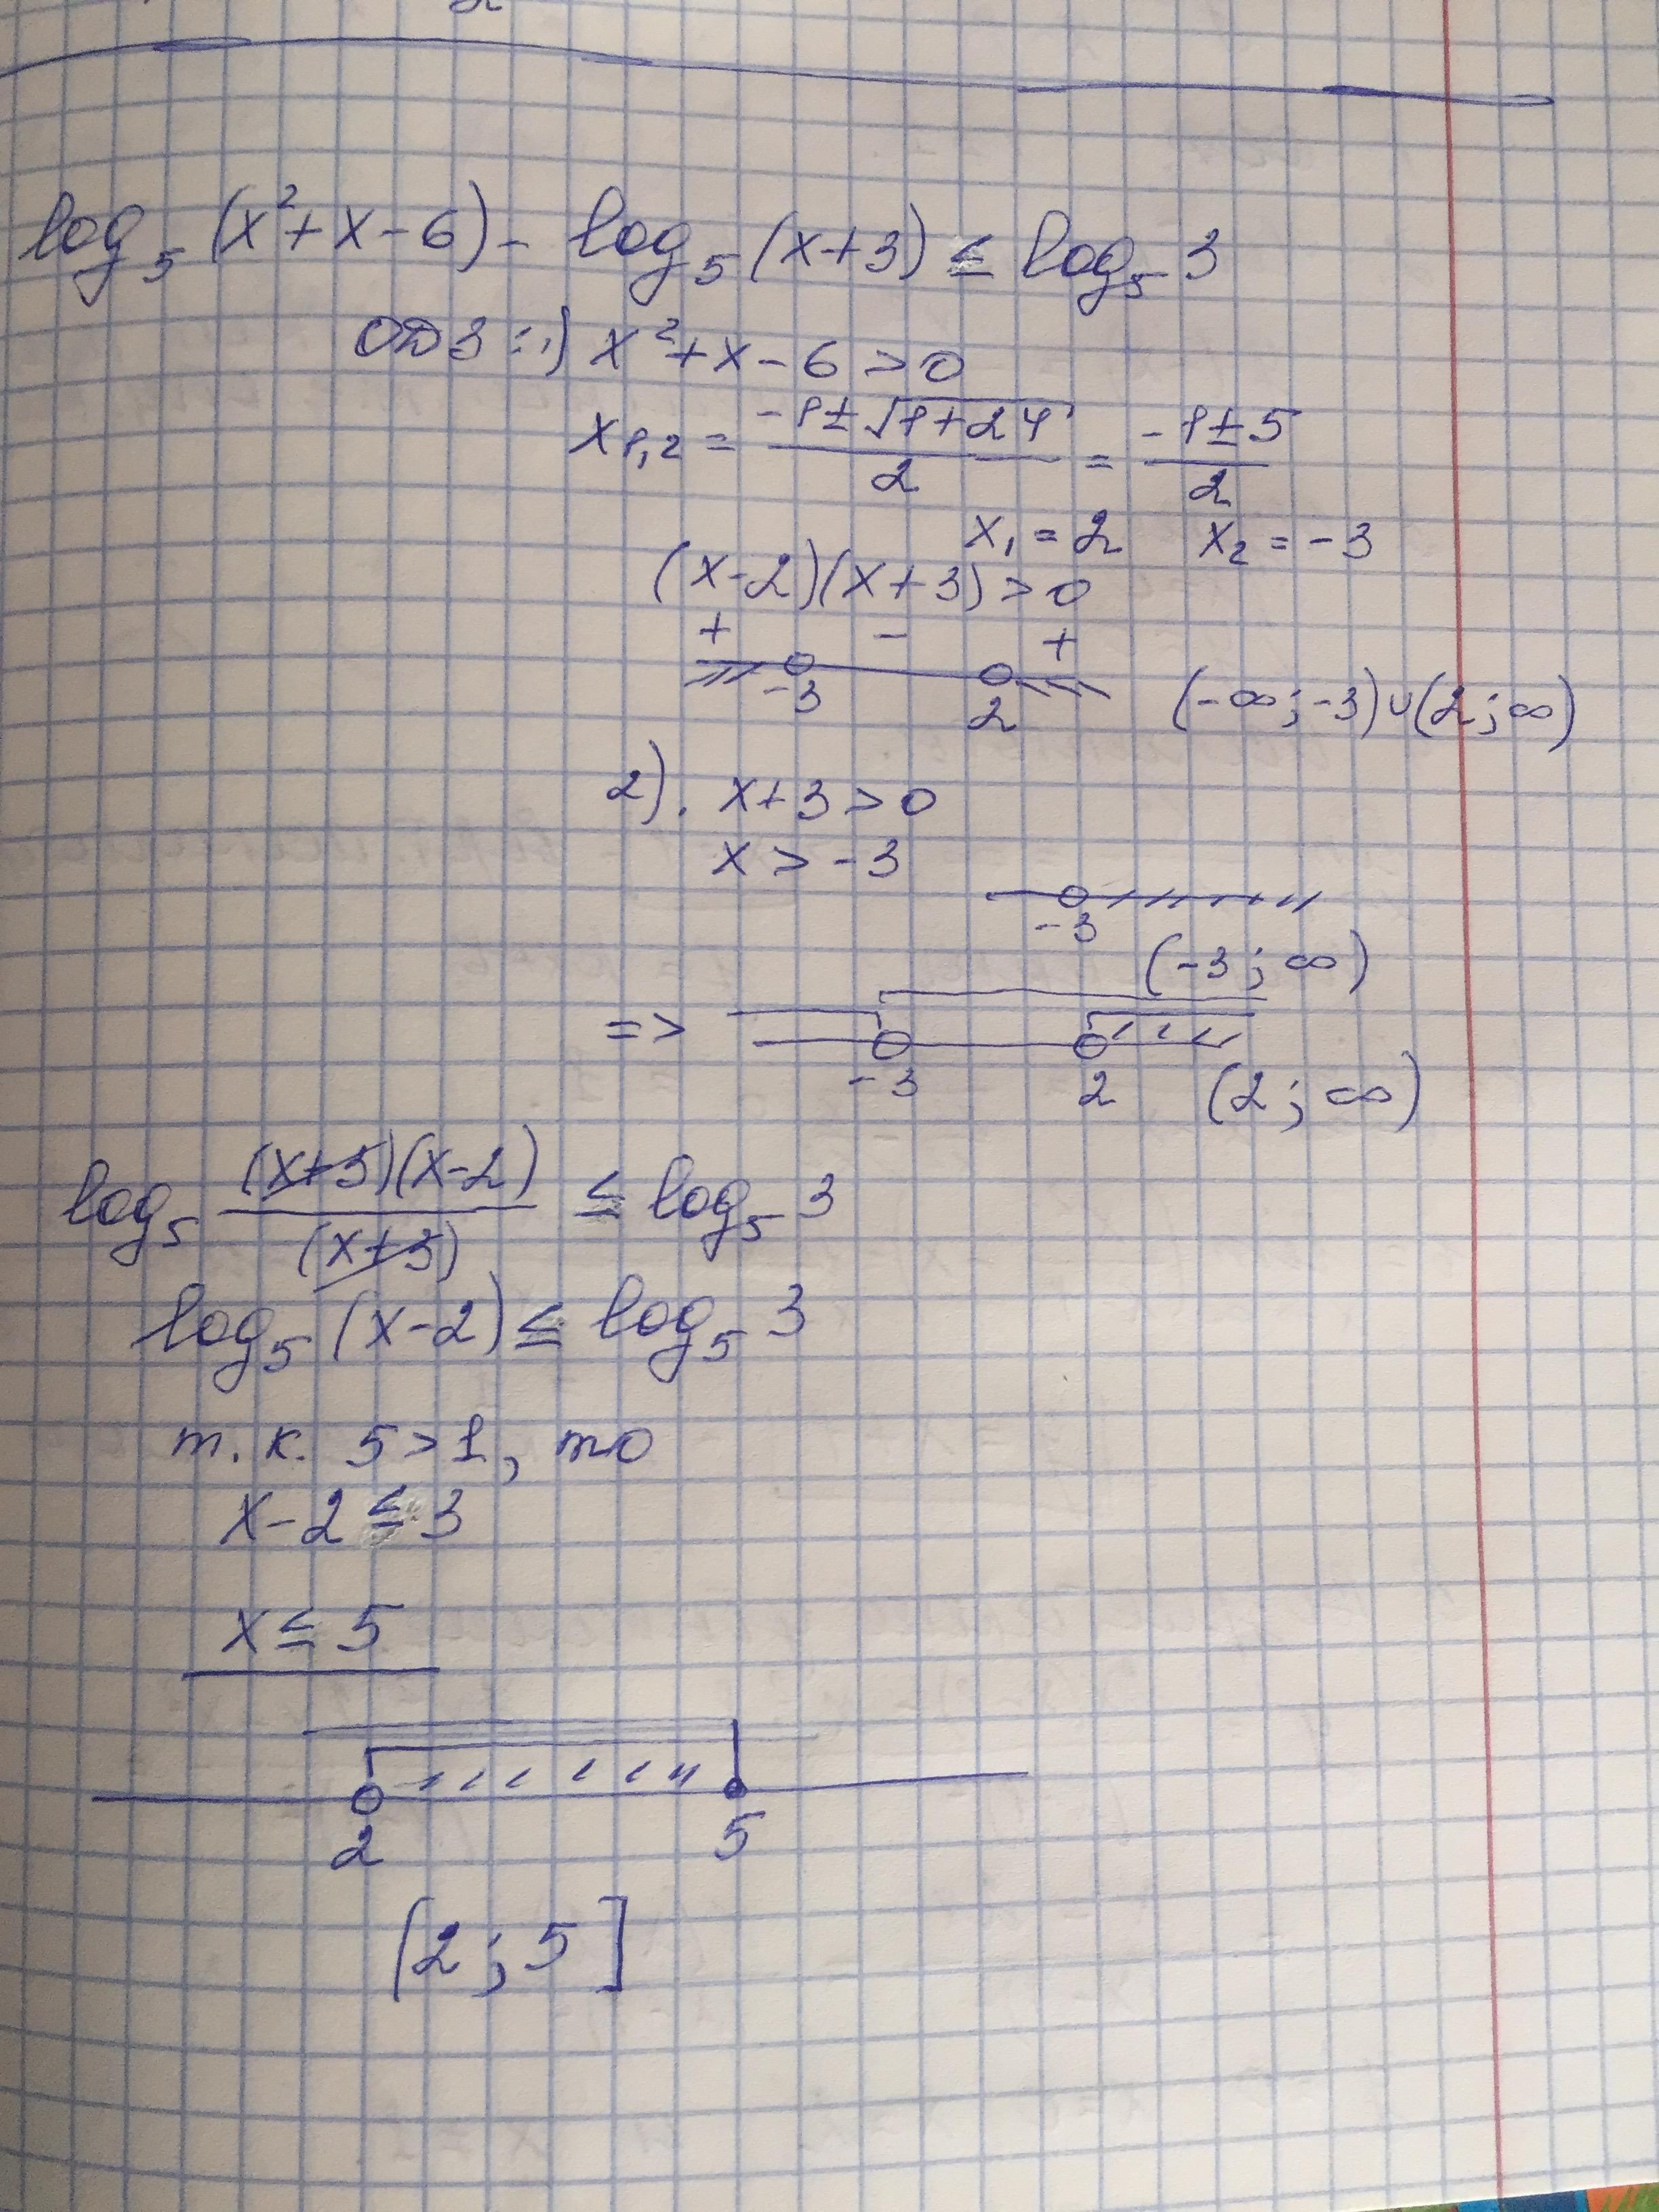 log₅(x²+x-6)- log₅(x+3) ≤ log₅3
ОДЗ: 1) x²+x-6>0
x₁,₂ = (-1±√(1+24))/2 = (-1±5)/2
x₁=2 x₂=-3
(x-2)(x+3)>0
+ - +
-3 2 (-∞;-3)∪(2;∞)
2). x+3>0
x>-3
-3
(-3;∞)
=>
-3 2 (2;∞)
log₅ (x+3)(x-2)/(x+3) ≤ log₅3
log₅(x-2) ≤ log₅3
т.к. 5>1, то
x-2≤3
x≤5
2 5
(2;5]